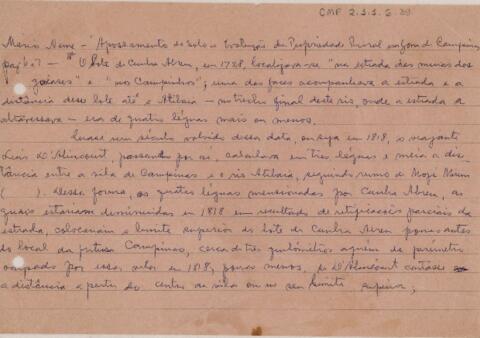 CMP 2.3.3.5.39
Mario Neme - "Apossamento do Solo e Evolução da Propriedade Rural na Zona de Campinas"
pag 6? - "O lote de Cunha Abreu, em 1728, localizava-se "na estrada das minas dos
goiases" e "nos Campinhos"; uma das faces acompanhava a estrada e a
distância desse lote até o Atibaia - no trecho final deste rio, onde a estrada o
atravessava - era de quatro léguas mais ou menos.
Quase um século volvido dessa data, ou seja em 1818, o viajante
Luis D'Alincourt, passando por aí, calculava em três léguas e meia a dis-
tância entre a vila de Campinas e o rio Atibaia, seguindo rumo de Mogi Mirim
( ). Dessa forma, as quatro léguas mencionadas por Cunha Abreu, as
quais estariam diminuidas em 1818 em resultado de retificações parciais da
estrada, colocariam o limite superior do lote de Cunha Abreu pouco antes
do local da futura Campinas, cerca de três quilômetros aquém do perímetro
ocupado por essa vila em 1818, pouco menos, se D'Alincourt contasse
a distância a partir do centro da vila ou no seu limite superior;